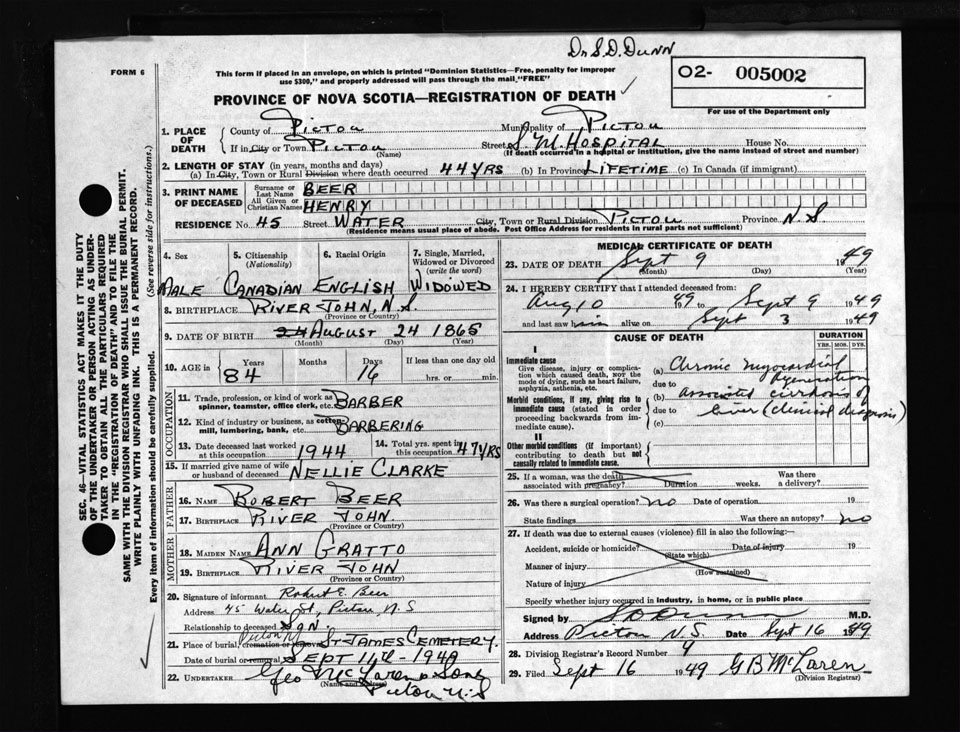 Dr S. D. Dunn
FORM 6
This form if placed in an envelope, on which is printed "Dominion Statistics—Free, penalty for improper use $300," and properly addressed will pass through the mail "FREE"
O2- 005002
For use of the Department only
PROVINCE OF NOVA SCOTIA—REGISTRATION OF DEATH ✓
1. PLACE OF DEATH
County of PICTOU Municipality of PICTOU
If in City or Town PICTOU (Name) Street S. M. HOSPITAL House No.
(If death occurred in a hospital or institution, give the name instead of street and number)
2. LENGTH OF STAY (in years, months and days)
(a) In City, Town or Rural Division where death occurred 44 YRS (b) In Province LIFETIME (c) In Canada (if immigrant)
3. PRINT NAME OF DECEASED
Surname or Last Name BEER
All Given or Christian Names HENRY
RESIDENCE No. 45 Street WATER City, Town or Rural Division PICTOU Province N.S
(Residence means usual place of abode. Post Office Address for residents in rural parts not sufficient)
4. Sex MALE
5. Citizenship (Nationality) CANADIAN
6. Racial Origin ENGLISH
7. Single, Married, Widowed or Divorced (write the word) WIDOWED
8. BIRTHPLACE RIVER JOHN, N.S. (Province or Country)
9. DATE OF BIRTH 24 AUGUST 24 1865
(Month) (Day) (Year)
10. AGE in Years 84 Months Days 16 If less than one day old hrs. or min.
OCCUPATION
11. Trade, profession, or kind of work as spinner, teamster, office clerk, etc. BARBER
12. Kind of industry or business, as cotton mill, lumbering, bank, etc. BARBERING
13. Date deceased last worked at this occupation 1944
14. Total yrs. spent in this occupation 47 YRS
15. If married give name of wife or husband of deceased NELLIE CLARKE
FATHER
16. NAME ROBERT BEER
17. BIRTHPLACE RIVER JOHN.
(Province or Country)
MOTHER
18. MAIDEN NAME ANN GRATTO
19. BIRTHPLACE RIVER JOHN
(Province or Country)
20. Signature of informant Robert E. Beer
Address 45 Water St, Pictou, N.S
Relationship to deceased Son
21. Place of burial, cremation or removal Pictou ST JAMES CEMETERY.
Date of burial or removal SEPT 11th - 1949
22. UNDERTAKER Geo McLaren & Sons
(Name and Address)
Pictou N.S
MEDICAL CERTIFICATE OF DEATH
23. DATE OF DEATH Sept 9 1949
(Month) (Day) (Year)
24. I HEREBY CERTIFY that I attended deceased from:
Aug 10 1949 to Sept 9 1949
and last saw him alive on Sept 3 1949
CAUSE OF DEATH
DURATION
YRS. MOS. DYS.
I
Immediate cause
Give disease, injury or complication which caused death, not the mode of dying, such as heart failure, asphyxia, asthenia, etc.
(a) Chronic myocardial degeneration
due to
Morbid conditions, if any, giving rise to immediate cause (stated in order proceeding backwards from immediate cause).
(b) associated cirrhosis of
due to liver (clinical diagnosis)
(c)
II
Other morbid conditions (if important) contributing to death but not causally related to immediate cause.
25. If a woman, was the death associated with pregnancy? Duration weeks. Was there a delivery?
26. Was there a surgical operation? no Date of operation 19
State findings Was there an autopsy? no
27. If death was due to external causes (violence) fill in also the following:
Accident, suicide or homicide? Date of injury 19
(State which)
Manner of injury
(How sustained)
Nature of injury
Specify whether injury occurred in industry, in home, or in public place
Signed by S D Dunn M.D.
Address Pictou N.S. Date Sept 16 1949
28. Division Registrar's Record Number 4
29. Filed Sept 16 1949 G B McLaren
(Division Registrar)
SEC. 46—VITAL STATISTICS ACT MAKES IT THE DUTY OF THE UNDERTAKER OR PERSON ACTING AS UNDERTAKER TO OBTAIN ALL THE PARTICULARS REQUIRED IN THE "REGISTRATION OF DEATH" AND TO FILE THE SAME WITH THE DIVISION REGISTRAR WHO SHALL ISSUE THE BURIAL PERMIT.
WRITE PLAINLY WITH UNFADING INK. THIS IS A PERMANENT RECORD.
Every item of information should be carefully supplied. (See reverse side for instructions.)